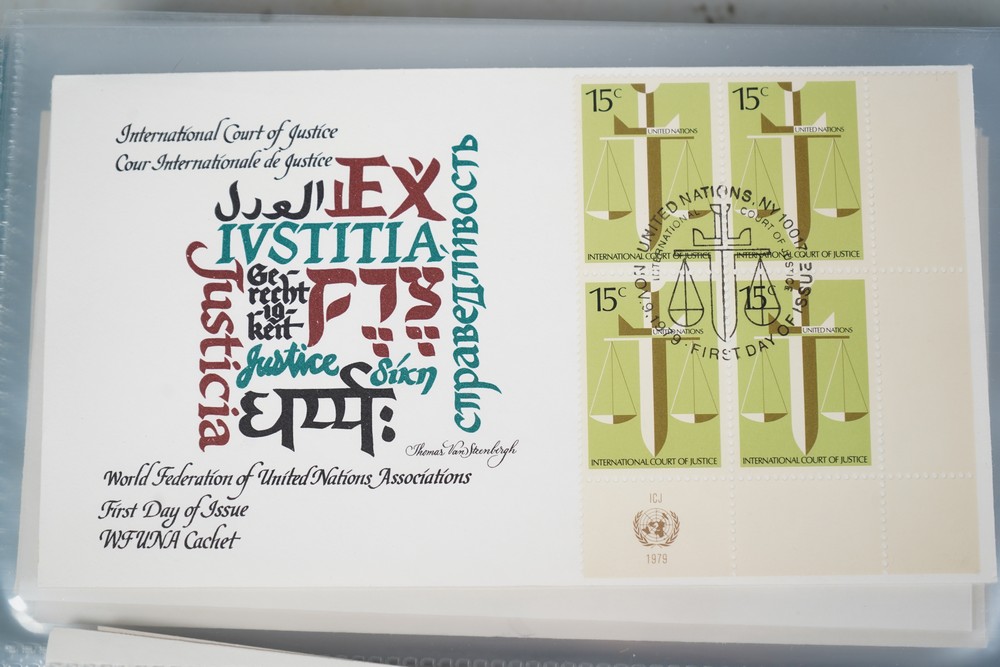 International Court of Justice
Cour Internationale de Justice
العدل
LEX
IVSTITIA
Justicia
Ge-
recht-
ig-
keit
צדק
справедливость
Justice
δίκη
धर्मः
Thomas Van Steenbergh
World Federation of United Nations Associations
First Day of Issue
WFUNA Cachet
15c
UNITED NATIONS
INTERNATIONAL COURT OF JUSTICE
15c
UNITED NATIONS
INTERNATIONAL COURT OF JUSTICE
UNITED NATIONS, NY 10017
INTERNATIONAL COURT OF JUSTICE
NOV. 9, 1979 · FIRST DAY OF ISSUE
15c
UNITED NATIONS
INTERNATIONAL COURT OF JUSTICE
15c
UNITED NATIONS
INTERNATIONAL COURT OF JUSTICE
ICJ
1979